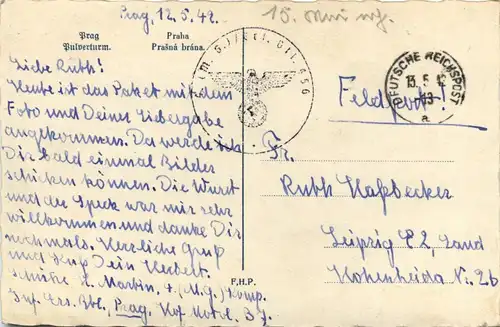 Prag. 12.5.42.
15. 
Prag
Pulverturm.
Praha
Prašná brána.
Liebe Ruth!
Heute ist das Paket mit dem
Foto und Deiner Liebergabe
angekommen. Da werde ich
Dir bald einmal Bilder
schicken können. Die Wurst
und der Speck war mir sehr
willkommen und danke Dir
nochmals. Herzliche Gruß
und Kuß Dein Herbert.
Schütze H. Martin, 4. (M.G.) Komp.
Inf. Ers. Btl., Prag.
DEUTSCHE REICHSPOST
13.5.42
a
Feldpost!
Fr.
Ruth Haßbecker
Leipzig C2, Land
Hohenheida Nr. 26
F.H.P.